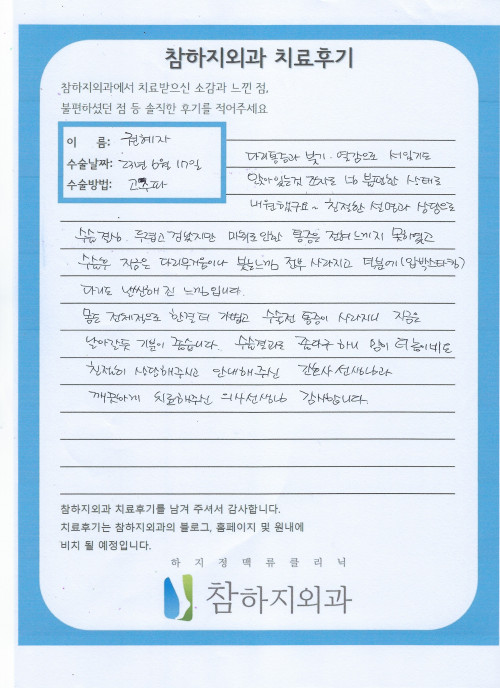 참하지외과 치료후기
참하지외과에서 치료받으신 소감과 느낀 점,
불편하셨던 점 등 솔직한 후기를 적어주세요
이 름: 권혜자
수술날짜: 23년 6월 17일
수술방법: 고주파
다리통증과 붓기. 열감으로 서있기도
앉아있는것 조차도 너무 불편한 상태로
내원했구요~ 친절한 설명과 상담으로
수술결심. 두렵고 겁났지만 마취로 인한 통증은 전혀 느끼지 못하였고
수술후 지금은 다리무거움이나 붓는느낌 전부 사라지고 덕분에 (압박스타킹)
다리도 날씬해 진 느낌입니다.
몸도 전체적으로 한결 더 가볍고 수술전 통증이 사라지니 지금은
날아갈듯 기분이 좋습니다. 수술결과도 좋다구 하니
친절히 상담해주시고 안내해주신 간호사 선생님과
깨끗하게 치료해주신 의사선생님 감사합니다.
참하지외과 치료후기를 남겨 주셔서 감사합니다.
치료후기는 참하지외과의 블로그, 홈페이지 및 원내에
비치 될 예정입니다.
하지정맥류클리닉
참하지외과